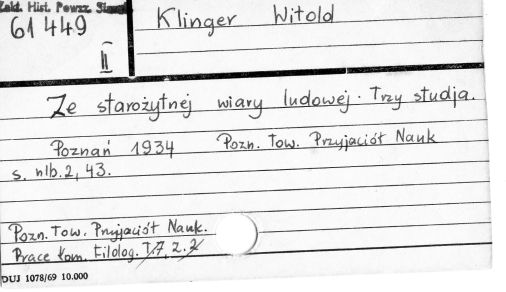 Zakł. Hist. Powsz. Słow
61449
II
Klinger Witold
Ze starożytnej wiary ludowej. Trzy studja.
Poznań 1934 Pozn. Tow. Przyjaciół Nauk
s. nlb. 2, 43.
Pozn. Tow. Przyjaciół Nauk.
Prace Kom. Filolog. T. 7, z. 2
DUJ 1078/69 10.000